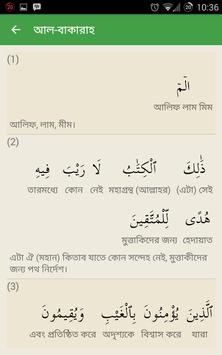 10:36
আল-বাকারাহ
(1)
الٓمٓ
আলিফ লাম মিম
আলিফ, লাম, মীম।
(2)
ذَٰلِكَ ٱلْكِتَٰبُ لَا رَيْبَ فِيهِ
তারমধ্যে কোন নেই মহাগ্রন্থ (আল্লাহর) (এটা) সেই
هُدًى لِّلْمُتَّقِينَ
মুত্তাকিদের জন্য হেদায়াত
এটা ঐ (মহান) কিতাব যাতে কোন সন্দেহ নেই, মুত্তাকীদের
জন্য পথ নির্দেশ।
(3)
ٱلَّذِينَ يُؤْمِنُونَ بِٱلْغَيْبِ وَيُقِيمُونَ
এবং প্রতিষ্ঠিত করে অদৃশ্যকে বিশ্বাস করে যারা